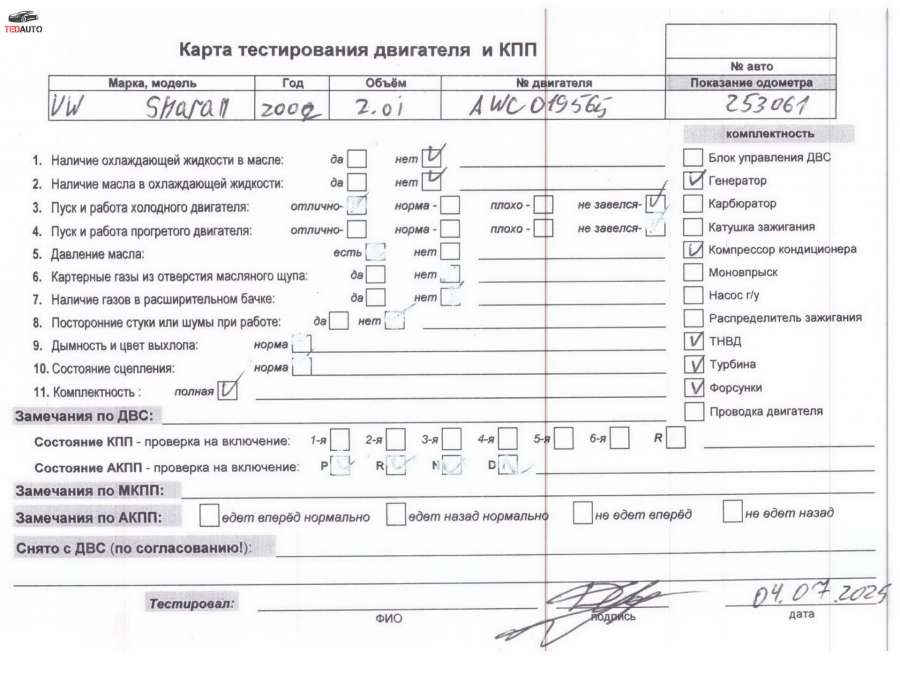 TEDAUTO
Карта тестирования двигателя и КПП
№ авто
Марка, модель Год Объём № двигателя Показание одометра
VW Sharan 2002 2.0i AWC 019565 253061
комплектность
1. Наличие охлаждающей жидкости в масле: да нет
2. Наличие масла в охлаждающей жидкости: да нет
3. Пуск и работа холодного двигателя: отлично- норма - плохо - не завелся-
4. Пуск и работа прогретого двигателя: отлично- норма - плохо - не завелся-
5. Давление масла: есть нет
6. Картерные газы из отверстия масляного щупа: да нет
7. Наличие газов в расширительном бачке: да нет
8. Посторонние стуки или шумы при работе: да нет
9. Дымность и цвет выхлопа: норма
10. Состояние сцепления: норма
11. Комплектность : полная
Блок управления ДВС
Генератор
Карбюратор
Катушка зажигания
Компрессор кондиционера
Моновпрыск
Насос г/у
Распределитель зажигания
ТНВД
Турбина
Форсунки
Проводка двигателя
Замечания по ДВС:
Состояние КПП - проверка на включение: 1-я 2-я 3-я 4-я 5-я 6-я R
Состояние АКПП - проверка на включение: P R N D
Замечания по МКПП:
Замечания по АКПП: едет вперёд нормально едет назад нормально не едет вперёд не едет назад
Снято с ДВС (по согласованию!):
Тестировал: 04.07.2025
ФИО подпись дата